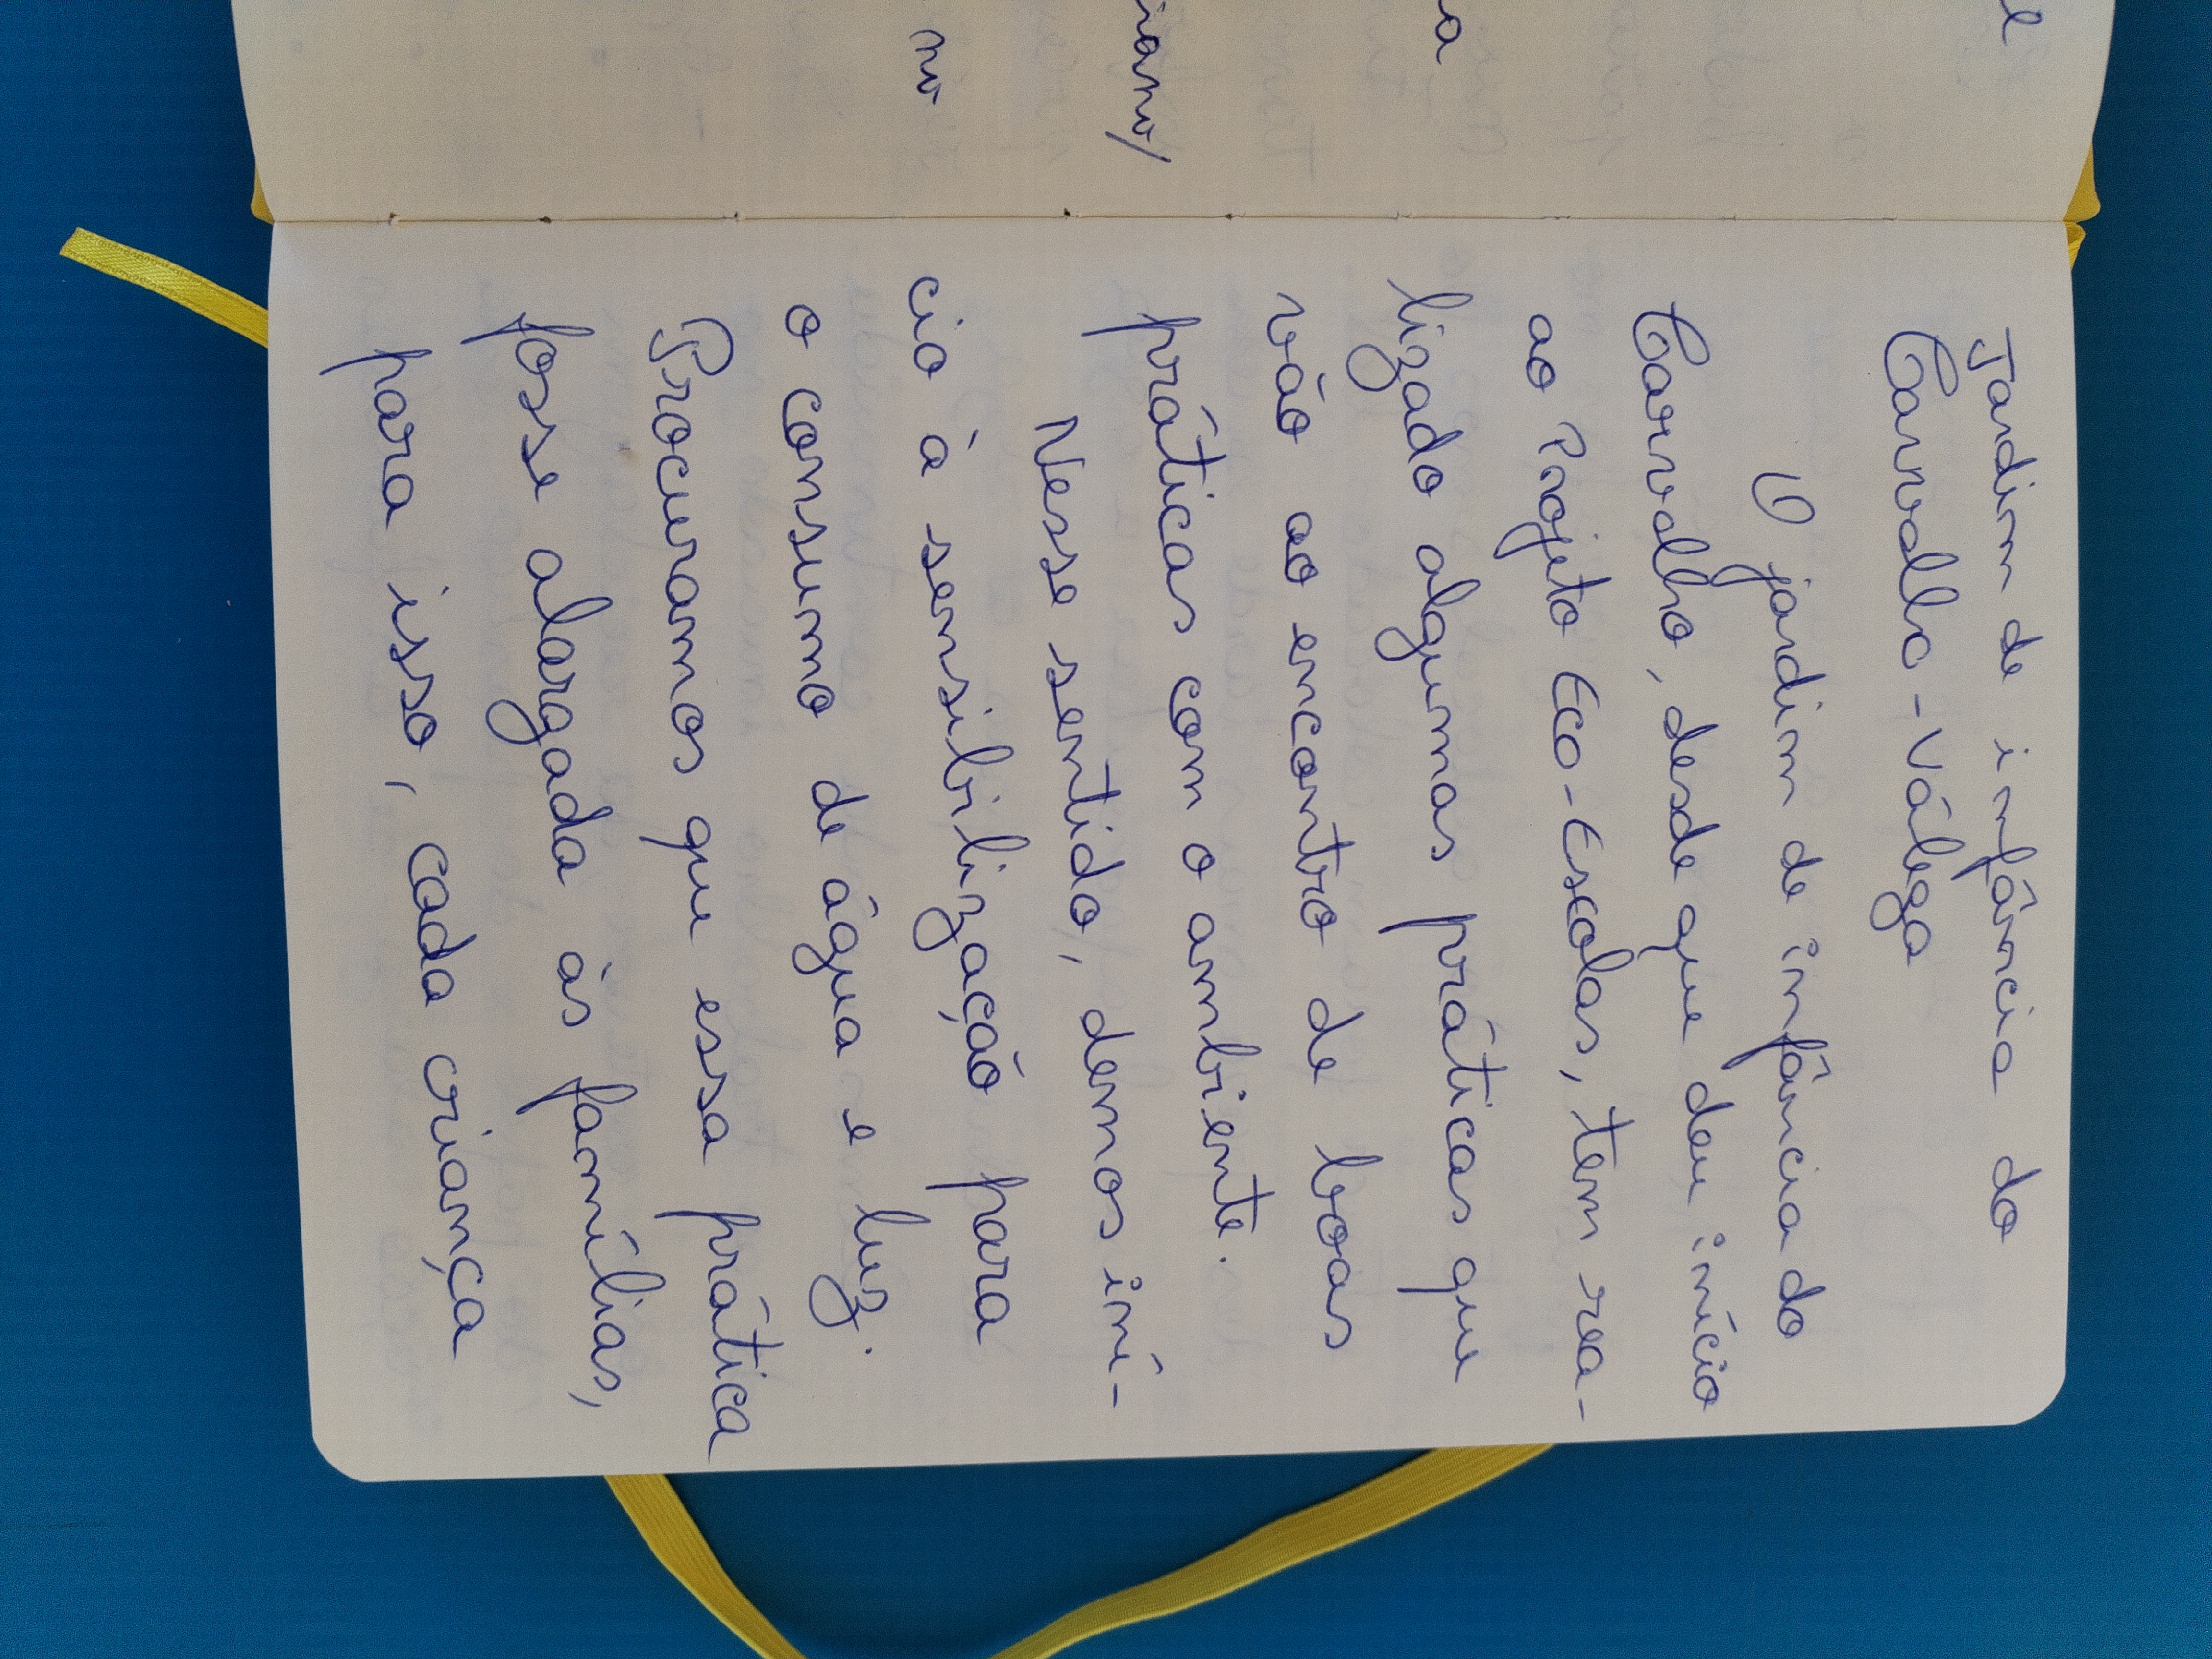 Jardim de infância do
Carvalho - Válega
O jardim de infância do
Carvalho, desde que deu início
ao Projeto Eco-Escolas, tem rea-
lizado algumas práticas que
vão ao encontro de boas
práticas com o ambiente.
Nesse sentido, demos iní-
cio à sensibilização para
o consumo de água e luz.
Procuramos que essa prática
fosse alargada às famílias,
para isso, cada criança